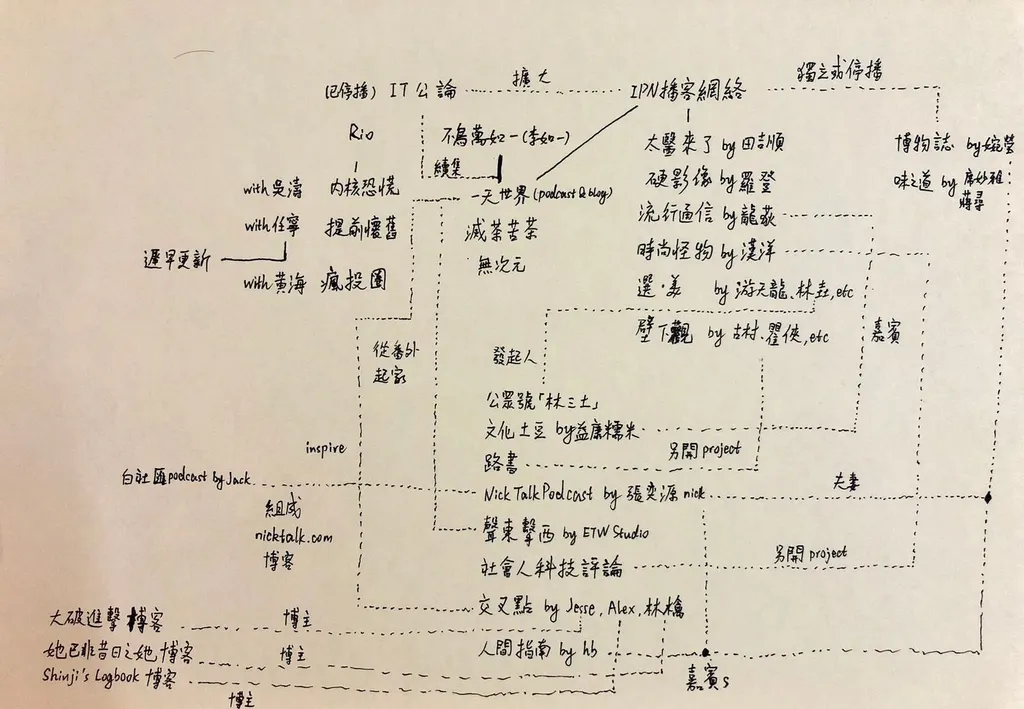 獨立或停播
擴大
(已停播) IT公論
IPN播客網絡
Rio
不鳥萬如一(李如一)
太醫來了 by 田吉順
博物誌 by 婉瑩
續集
with 吳濤 內核恐慌
一天世界 (podcast & blog)
硬影像 by 羅登
味之道 by 席妙雅
蔣尋
with 任寧 提前懷舊
滅茶苦茶
流行通信 by 龍荻
遲早更新
無次元
時尚怪物 by 漢洋
with 黃海 瘋投圈
選·美 by 游天龍、林垚, etc
從番外
起家
發起人
壁下觀 by 古村、瞿俠, etc
嘉賓
公眾號「林三土」
文化土豆 by 益康糯米
另開 project
inspire
路書
白社匯 podcast by Jack
NickTalkPodcast by 張奕源 nick
夫妻
組成
nicktalk.com
博客
聲東擊西 by ETW Studio
社會人科技評論
另開 project
交叉點 by Jesse, Alex, 林檎
大破進擊博客
博主
她已非昔日之她 博客
博主
人間指南 by hb
Shinji's Logbook 博客
博主
嘉賓s